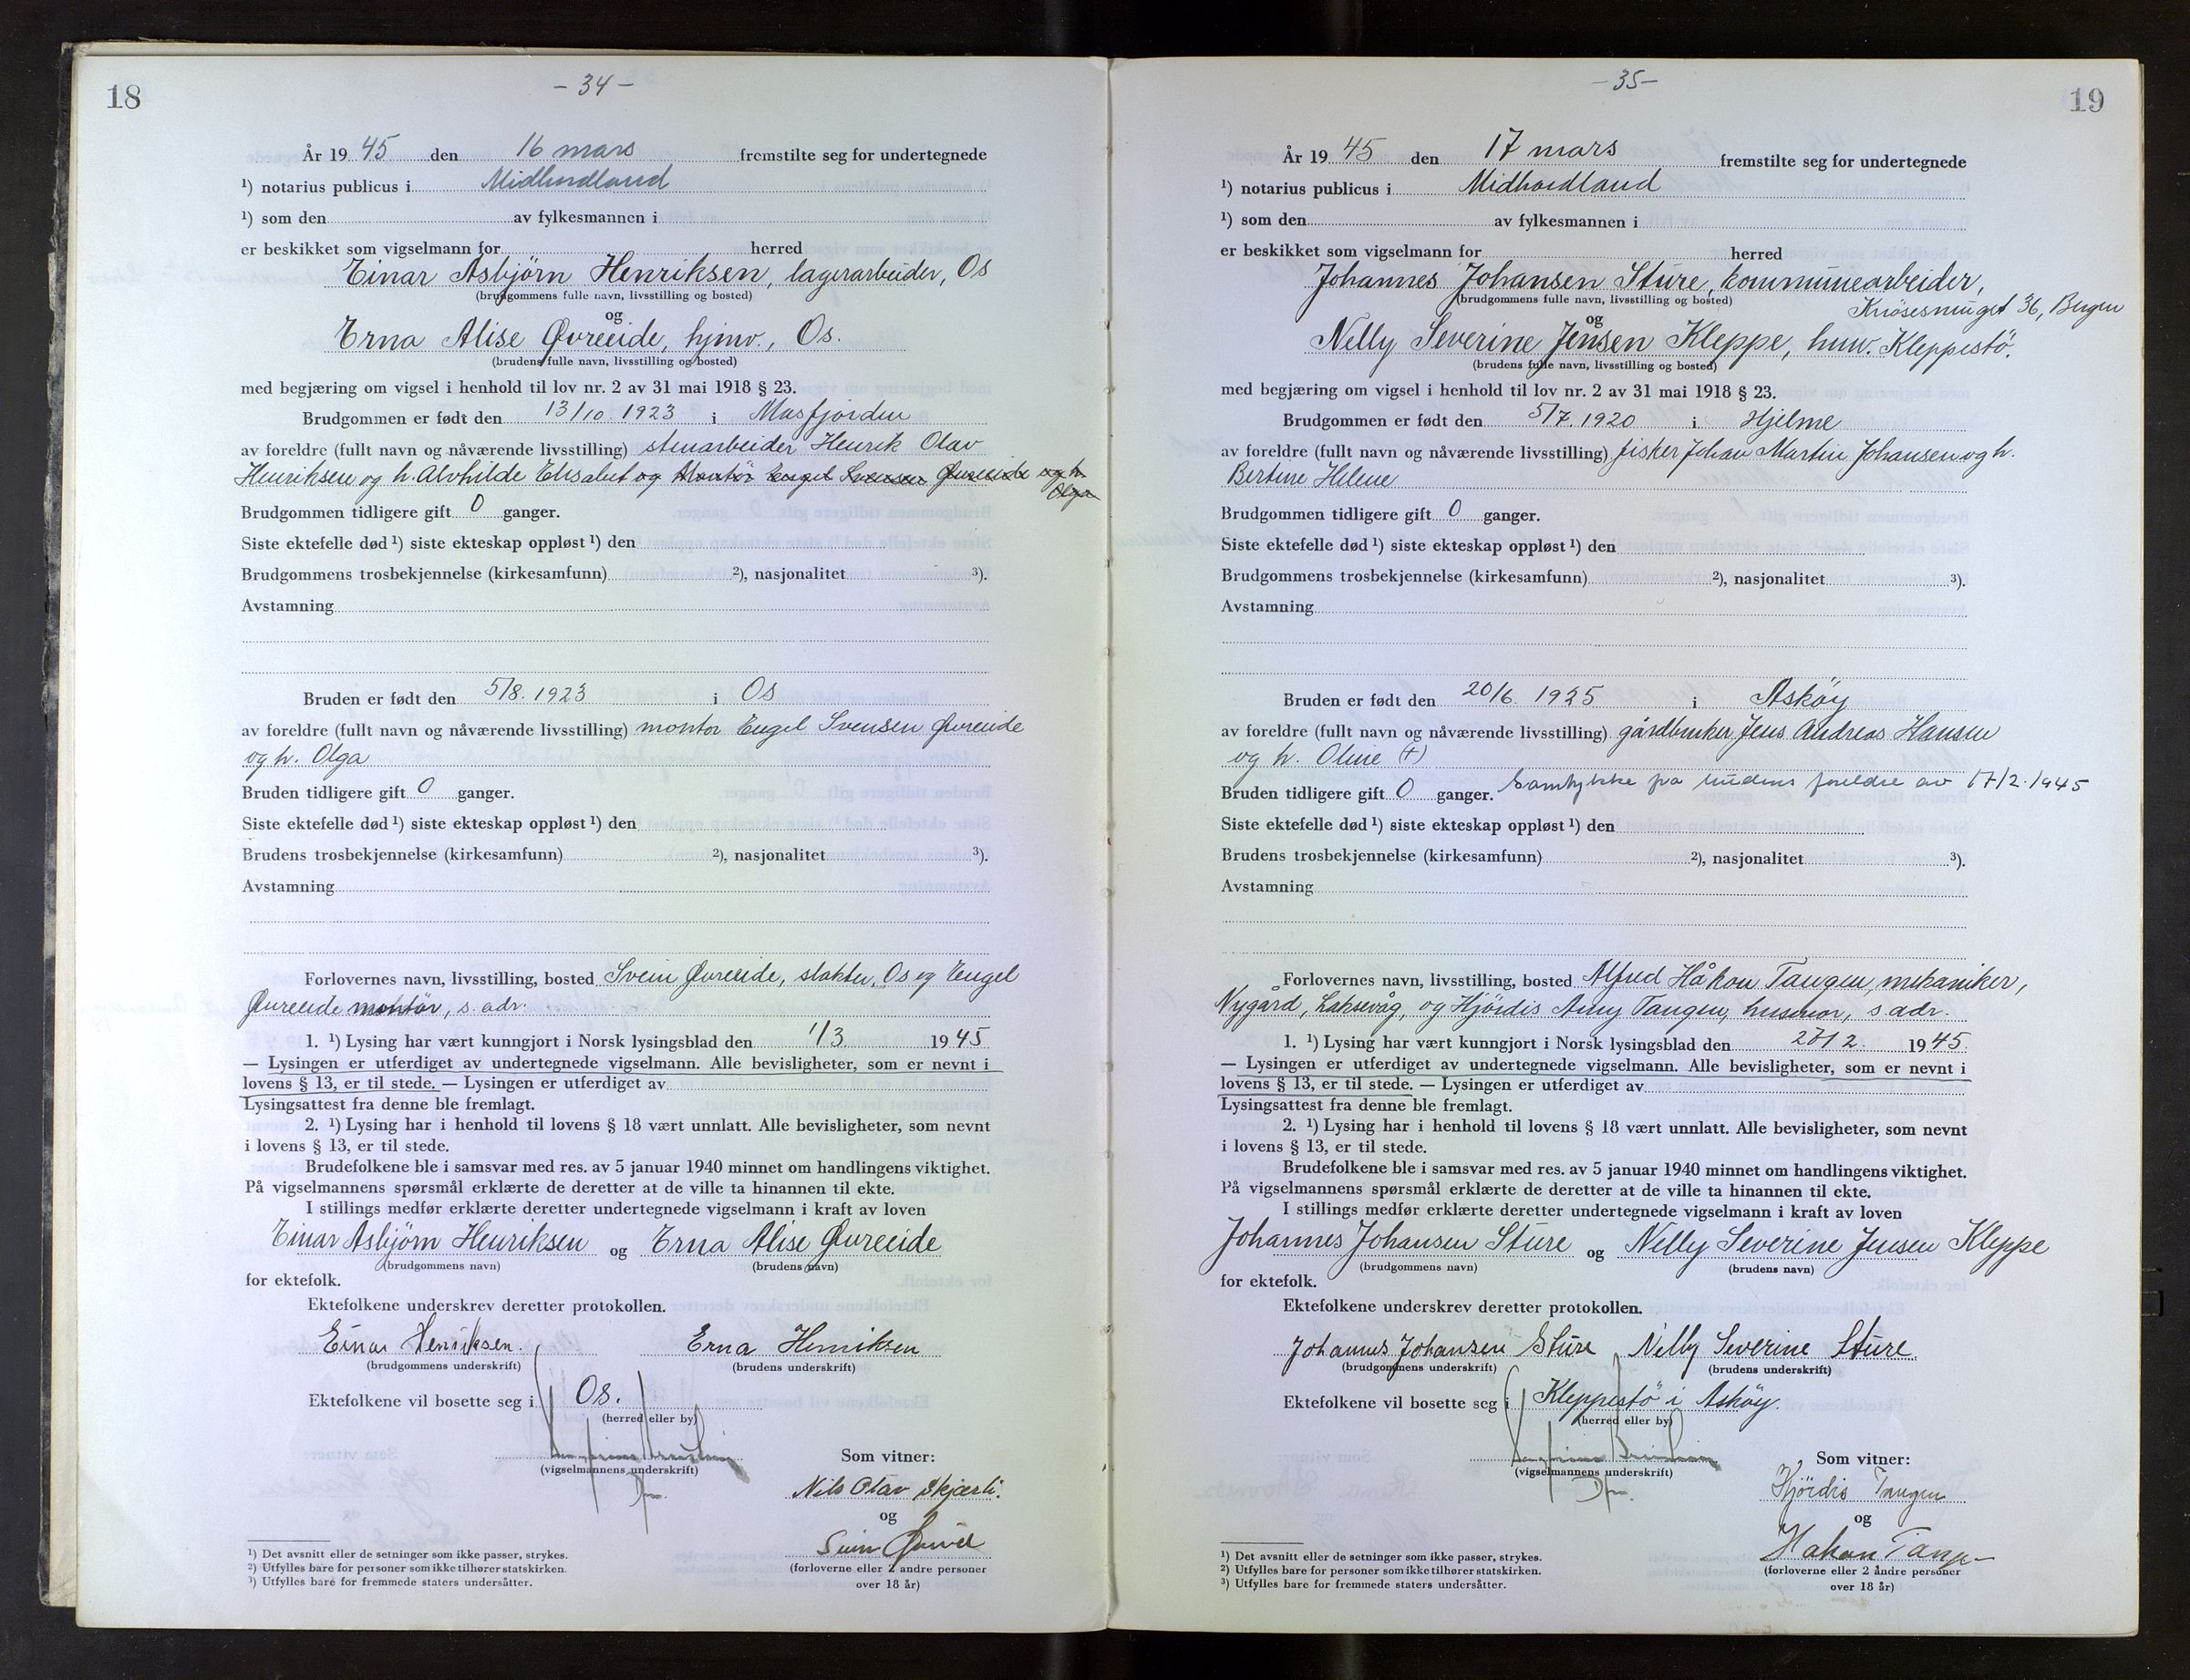 18
- 34 -
År 19 45 den 16 mars fremstilte seg for undertegnede
¹) notarius publicus i Midhordland
¹) som den av fylkesmannen i
er beskikket som vigselmann for herred
Einar Asbjörn Henriksen, lagerarbeider, Os
(brudgommens fulle navn, livsstilling og bosted)
og
Erna Alise Øvreeide, hjmv., Os.
(brudens fulle navn, livsstilling og bosted)
med begjæring om vigsel i henhold til lov nr. 2 av 31 mai 1918 § 23.
Brudgommen er født den 13/10. 1923 i Masfjorden
av foreldre (fullt navn og nåværende livsstilling) stenarbeider Henrik Olav
Henriksen og h. Alvhilde Elisabet og Montör Engel Svensen Øvreeide og h.
Olga
Brudgommen tidligere gift 0 ganger.
Siste ektefelle død ¹) siste ekteskap oppløst ¹) den
Brudgommens trosbekjennelse (kirkesamfunn) ²), nasjonalitet ³).
Avstamning
Bruden er født den 5/8. 1923 i Os
av foreldre (fullt navn og nåværende livsstilling) montör Engel Svensen Øvreeide
og h. Olga
Bruden tidligere gift 0 ganger.
Siste ektefelle død ¹) siste ekteskap oppløst ¹) den
Brudens trosbekjennelse (kirkesamfunn) ²), nasjonalitet ³).
Avstamning
Forlovernes navn, livsstilling, bosted Svein Øvreeide, slakter, Os og Engel
Øvreeide montör, s. adr.
1. ¹) Lysing har vært kunngjort i Norsk lysingsblad den 1/3. 19 45
— Lysingen er utferdiget av undertegnede vigselmann. Alle bevisligheter, som er nevnt i
lovens § 13, er til stede. — Lysingen er utferdiget av
Lysingsattest fra denne ble fremlagt.
2. ¹) Lysing har i henhold til lovens § 18 vært unnlatt. Alle bevisligheter, som nevnt
i lovens § 13, er til stede.
Brudefolkene ble i samsvar med res. av 5 januar 1940 minnet om handlingens viktighet.
På vigselmannens spørsmål erklærte de deretter at de ville ta hinannen til ekte.
I stillings medfør erklærte deretter undertegnede vigselmann i kraft av loven
Einar Asbjörn Henriksen og Erna Alise Øvreeide
(brudgommens navn) (brudens navn)
for ektefolk.
Ektefolkene underskrev deretter protokollen.
Einar Henriksen. Erna Henriksen
(brudgommens underskrift) (brudens underskrift)
Ektefolkene vil bosette seg i Os.
(herred eller by)
Som vitner:
(vigselmannens underskrift)
Nils Olav Skjærli.
og
Svein
(forloverne eller 2 andre personer
over 18 år)
¹) Det avsnitt eller de setninger som ikke passer, strykes.
²) Utfylles bare for personer som ikke tilhører statskirken.
³) Utfylles bare for fremmede staters undersåtter.
- 35 -
19
År 19 45 den 17 mars fremstilte seg for undertegnede
¹) notarius publicus i Midhordland
¹) som den av fylkesmannen i
er beskikket som vigselmann for herred
Johannes Johansen Sture, kommunearbeider,
(brudgommens fulle navn, livsstilling og bosted)
Knösesmuget 36, Bergen
og
Nelly Severine Jensen Kleppe, husv. Kleppestö.
(brudens fulle navn, livsstilling og bosted)
med begjæring om vigsel i henhold til lov nr. 2 av 31 mai 1918 § 23.
Brudgommen er født den 5/7. 1920 i Hjelme
av foreldre (fullt navn og nåværende livsstilling) fisker Johan Martin Johansen og h.
Bertine Helene
Brudgommen tidligere gift 0 ganger.
Siste ektefelle død ¹) siste ekteskap oppløst ¹) den
Brudgommens trosbekjennelse (kirkesamfunn) ²), nasjonalitet ³).
Avstamning
Bruden er født den 20/6. 1925 i Asköy
av foreldre (fullt navn og nåværende livsstilling) gårdbruker Jens Andreas Hansen
og h. Oline (+)
Bruden tidligere gift 0 ganger. Samtykke fra brudens foreldre av 17/2. 1945
Siste ektefelle død ¹) siste ekteskap oppløst ¹) den
Brudens trosbekjennelse (kirkesamfunn) ²), nasjonalitet ³).
Avstamning
Forlovernes navn, livsstilling, bosted Alfred Håkon Tangen, mekaniker,
Nygård, Laksevåg, og Hjördis Amy Tangen, husmor, s. adr.
1. ¹) Lysing har vært kunngjort i Norsk lysingsblad den 19 45.
— Lysingen er utferdiget av undertegnede vigselmann. Alle bevisligheter, som er nevnt i
lovens § 13, er til stede. — Lysingen er utferdiget av
Lysingsattest fra denne ble fremlagt.
2. ¹) Lysing har i henhold til lovens § 18 vært unnlatt. Alle bevisligheter, som nevnt
i lovens § 13, er til stede.
Brudefolkene ble i samsvar med res. av 5 januar 1940 minnet om handlingens viktighet.
På vigselmannens spørsmål erklærte de deretter at de ville ta hinannen til ekte.
I stillings medfør erklærte deretter undertegnede vigselmann i kraft av loven
Johannes Johansen Sture og Nelly Severine Jensen Kleppe
(brudgommens navn) (brudens navn)
for ektefolk.
Ektefolkene underskrev deretter protokollen.
Johannes Johansen Sture Nelly Severine Sture.
(brudgommens underskrift) (brudens underskrift)
Ektefolkene vil bosette seg i Kleppestö i Asköy.
(herred eller by)
Som vitner:
(vigselmannens underskrift)
Hjördis Tangen
og
Håkon Tangen
(forloverne eller 2 andre personer
over 18 år)
¹) Det avsnitt eller de setninger som ikke passer, strykes.
²) Utfylles bare for personer som ikke tilhører statskirken.
³) Utfylles bare for fremmede staters undersåtter.